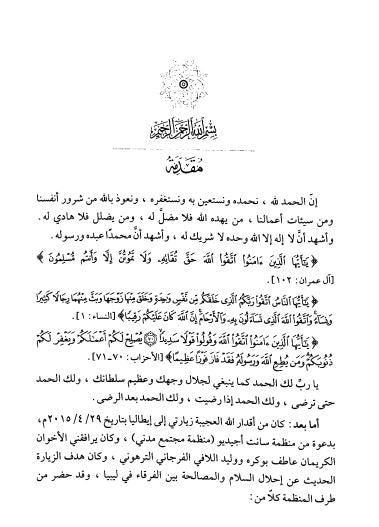 بِسْمِ اللَّهِ الرَّحْمَنِ الرَّحِيمِ
مُقَدِّمَة
إنّ الحمد لله ، نحمده ونستعين به ونستغفره ، ونعوذ بالله من شرور أنفسنا
ومن سيئات أعمالنا ، من يهده الله فلا مضلّ له ، ومن يضلل فلا هادي له .
وأشهد أنّ لا إله إلا الله وحده لا شريك له ، وأشهد أنّ محمدًا عبده ورسوله .
﴿ يَٰٓأَيُّهَا ٱلَّذِينَ ءَامَنُوا۟ ٱتَّقُوا۟ ٱللَّهَ حَقَّ تُقَاتِهِۦ وَلَا تَمُوتُنَّ إِلَّا وَأَنتُم مُّسْلِمُونَ ﴾
[آل عمران: ١٠٢] .
﴿ يَٰٓأَيُّهَا ٱلنَّاسُ ٱتَّقُوا۟ رَبَّكُمُ ٱلَّذِى خَلَقَكُم مِّن نَّفْسٍ وَٰحِدَةٍ وَخَلَقَ مِنْهَا زَوْجَهَا وَبَثَّ مِنْهُمَا رِجَالًا كَثِيرًا
وَنِسَآءً وَٱتَّقُوا۟ ٱللَّهَ ٱلَّذِى تَسَآءَلُونَ بِهِۦ وَٱلْأَرْحَامَ إِنَّ ٱللَّهَ كَانَ عَلَيْكُمْ رَقِيبًا ﴾ [النساء: ١] .
﴿ يَٰٓأَيُّهَا ٱلَّذِينَ ءَامَنُوا۟ ٱتَّقُوا۟ ٱللَّهَ وَقُولُوا۟ قَوْلًا سَدِيدًا ۝ يُصْلِحْ لَكُمْ أَعْمَٰلَكُمْ وَيَغْفِرْ لَكُمْ
ذُنُوبَكُمْ وَمَن يُطِعِ ٱللَّهَ وَرَسُولَهُۥ فَقَدْ فَازَ فَوْزًا عَظِيمًا ﴾ [الأحزاب: ٧٠-٧١] .
يا ربّ لك الحمد كما ينبغي لجلال وجهك وعظيم سلطانك ، ولك الحمد
حتى ترضى ، ولك الحمد إذا رضيت ، ولك الحمد بعد الرضى .
أما بعد: كان من أقدار الله العجيبة زيارتي إلى إيطاليا بتاريخ ٢٩/ ٤/ ٢٠١٥م ،
بدعوة من منظمة سانت أجيديو (منظمة مجتمع مدني) ، وكان يرافقني الأخوان
الكريمان عاطف بوكره ووليد اللافي الفرجاني الترهوني ، وكان هدف الزيارة
الحديث عن إحلال السلام والمصالحة بين الفرقاء في ليبيا ، وقد حضر من
طرف المنظمة كلاً من: